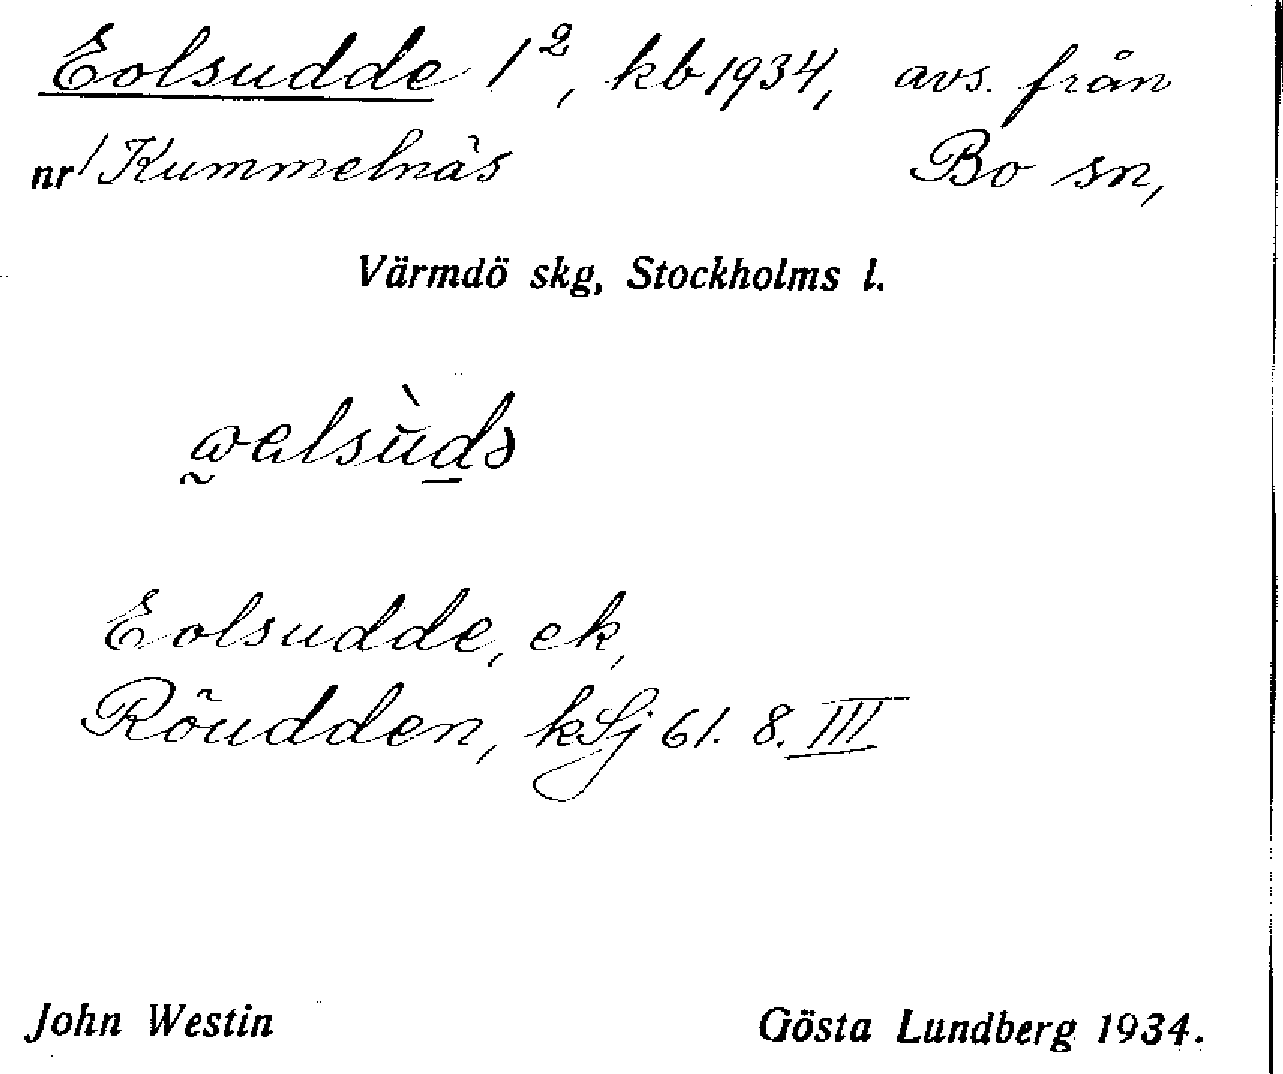 Eolsudde 1², kb 1934, avs. från
nr 1 Kummelnäs Bo sn,
Värmdö skg, Stockholms l.
Eolsudde, ek,
Röudden, kSj 61. 8. III
John Westin Gösta Lundberg 1934.